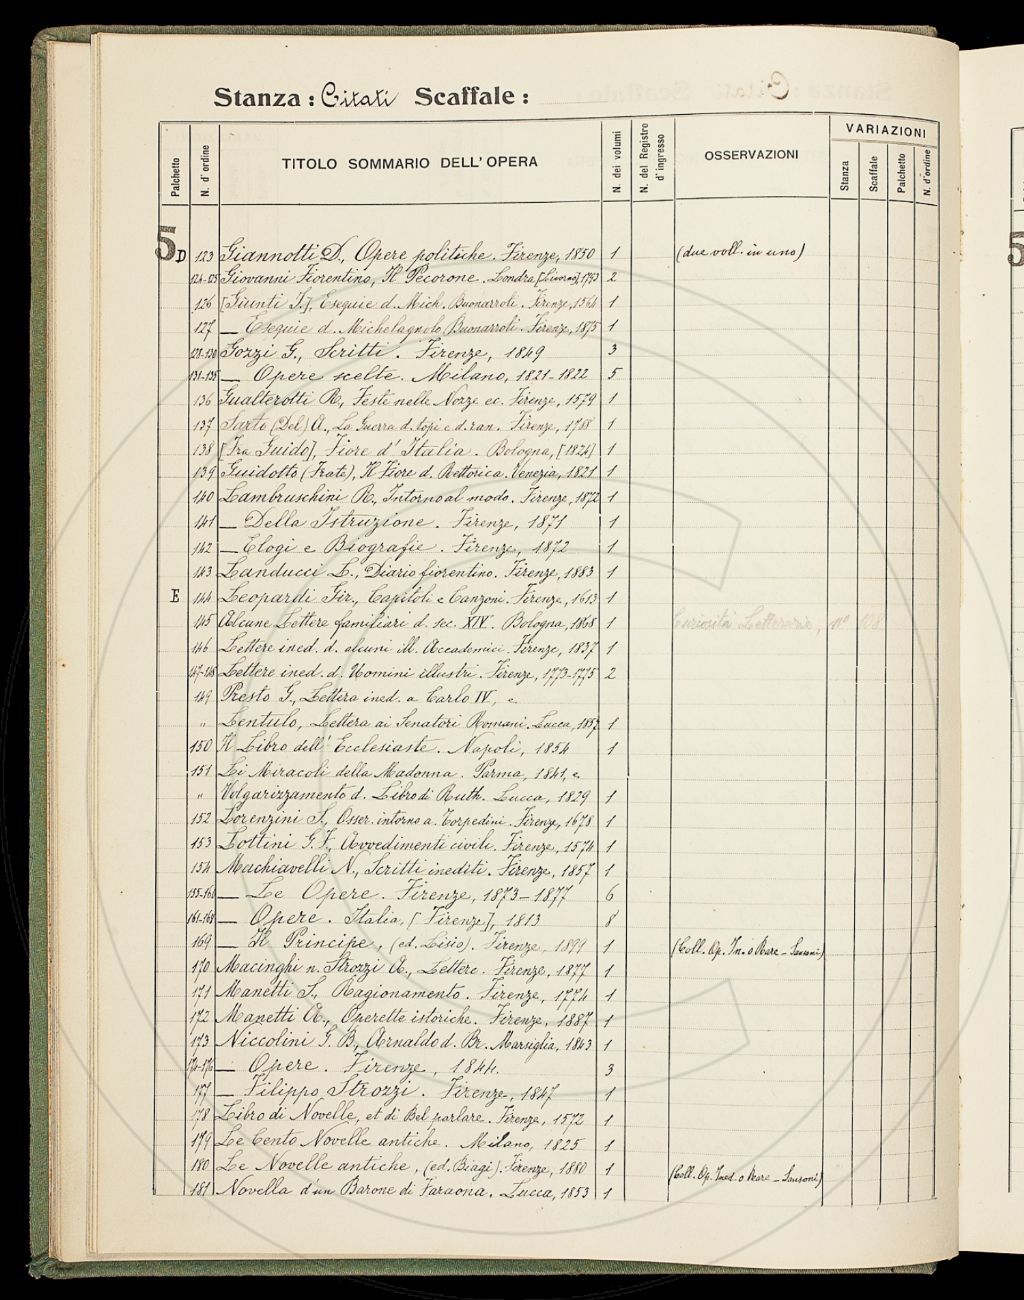 Stanza: Citati Scaffale:
Palchetto N. d'ordine TITOLO SOMMARIO DELL'OPERA N. dei volumi N. del Registro d'ingresso OSSERVAZIONI VARIAZIONI Stanza Scaffale Palchetto N. d'ordine
5 D 123 Giannotti D., Opere politiche. Firenze, 1850 1 (due voll. in uno)
124-125 Giovanni Fiorentino, Il Pecorone. Londra [Livorno], 1793 2
126 [Giunti J.], Esequie d. Mich. Buonarroti. Firenze, 1564 1
127 — Esequie d. Michelagnolo Buonarroti. Firenze, 1875 1
128-130 Gozzi G., Scritti. Firenze, 1849 3
131-135 — Opere scelte. Milano, 1821-1822 5
136 Gualterotti R., Feste nelle Nozze ec. Firenze, 1579 1
137 Sarto (Del) A., La Guerra d. topi e d. ran. Firenze, 1788 1
138 [Fra Guido], Fiore d'Italia. Bologna, [1824] 1
139 Guidotto (Frate), Il Fiore d. Rettorica. Venezia, 1821 1
140 Lambruschini R., Intorno al modo. Firenze, 1872 1
141 — Della Istruzione. Firenze, 1871 1
142 — Elogi e Biografie. Firenze, 1872 1
143 Landucci L., Diario fiorentino. Firenze, 1883 1
E 144 Leopardi Gir., Capitoli e Canzoni. Firenze, 1613 1
145 Alcune Lettere familiari d. sec. XIV. Bologna, 1868 1 Curiosità Letterarie, n° 108
146 Lettere ined. d. alcuni ill. Accademici. Firenze, 1837 1
147-148 Lettere ined. d. Uomini illustri. Firenze, 1773-1775 2
149 Presto G., Lettera ined. a Carlo IV, e
" Lentulo, Lettera ai Senatori Romani. Lucca, 1857 1
150 Il Libro dell'Ecclesiaste. Napoli, 1854 1
151 Li Miracoli della Madonna. Parma, 1841, e
" Volgarizzamento d. Libro di Ruth. Lucca, 1829 1
152 Lorenzini S., Osser. intorno a. Torpedini. Firenze, 1678 1
153 Lottini G. F., Avvedimenti civili. Firenze, 1574 1
154 Machiavelli N., Scritti inediti. Firenze, 1857 1
155-160 — Le Opere. Firenze, 1873-1877 6
161-168 — Opere. Italia, [Firenze], 1813 8
169 — Il Principe, (ed. Lisio). Firenze, 1899 1 (Coll. Op. In. o Rare - Sansoni)
170 Macinghi n. Strozzi A., Lettere. Firenze, 1877 1
171 Manetti S., Ragionamento. Firenze, 1774 1
172 Manetti A., Operette istoriche. Firenze, 1887 1
173 Niccolini G. B., Arnaldo d. Br. Marsiglia, 1843 1
174-176 — Opere. Firenze, 1844. 3
177 — Filippo Strozzi. Firenze, 1847 1
178 Libro di Novelle, et di Bel parlare. Firenze, 1572 1
179 Le Cento Novelle antiche. Milano, 1825 1
180 Le Novelle antiche, (ed. Biagi). Firenze, 1880 1 (Coll. Op. Ined. o Rare - Sansoni)
181 Novella d'un Barone di Faraona. Lucca, 1853 1
5